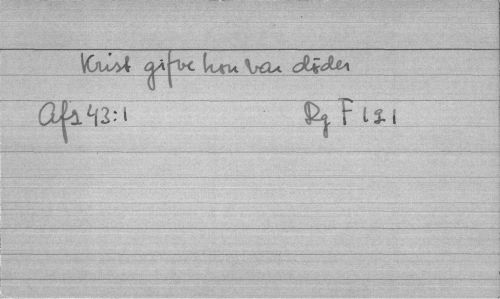 Krist gifve hon var döder
Afs 43:1 Rg F 121